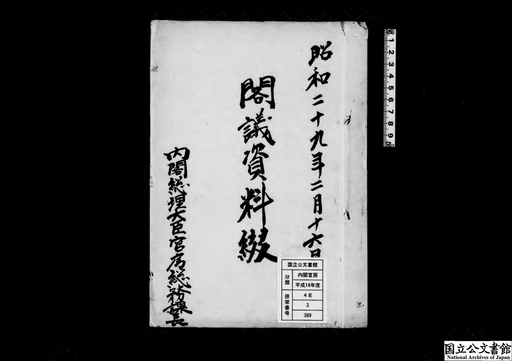 昭和二十九年二月十六日
閣議資料綴
内閣総理大臣官房総務課長
国立公文書館
分類
内閣官房
平成14年度
排架番号
4E
3
389
1 2 3 4 5 6 7 8 9
国立公文書館
National Archives of Japan